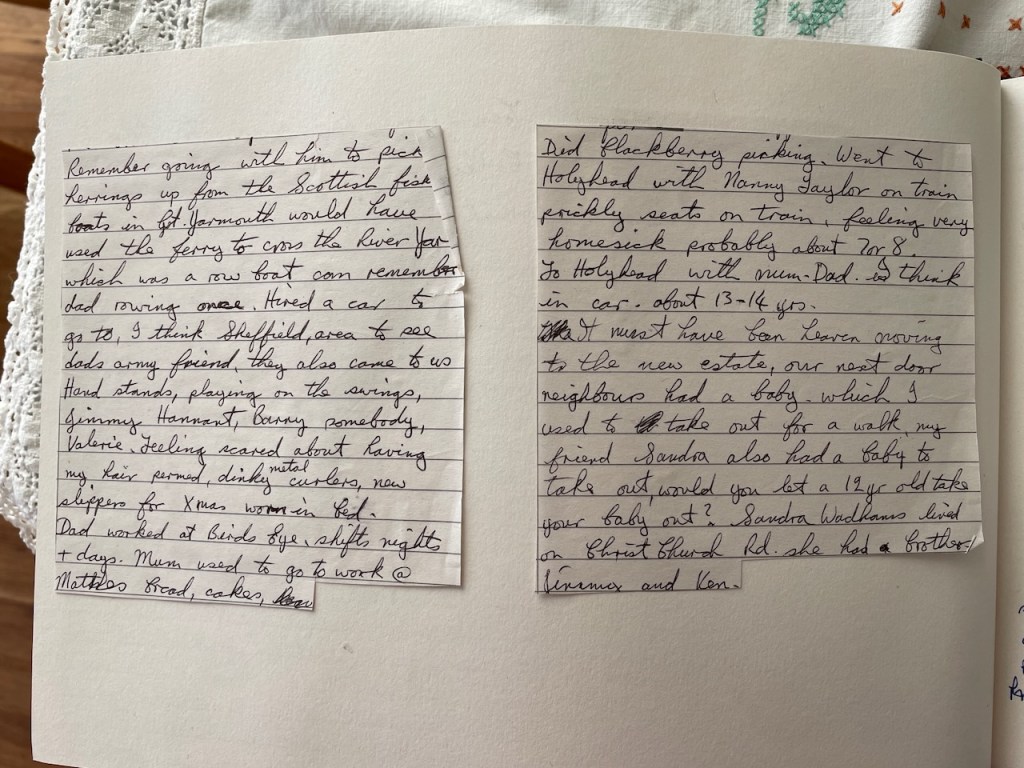 Remember going with him to pick
herrings up from the Scottish fish
boats in Gt. Yarmouth would have
used the ferry to cross the River Yar
which was a row boat can remember
dad rowing once. Hired a car to
go to, I think Sheffield, area to see
dads army friend, they also came to us
Hand stands, playing on the swings,
Jimmy Hannant, Barry somebody,
Valerie. Feeling scared about having
my hair permed, dinky metal curlers, new
slippers for Xmas worn in bed.
Dad worked at Birds Eye shifts nights
+ days. Mum used to go to work @
Mathes bread, cakes,
Did Blackberry picking. Went to
Holyhead with Nanny Taylor on train
prickly seats on train, feeling very
homesick probably about 7 or 8.
To Holyhead with mum. Dad. I think
in car. about 13-14 yrs.
It must have been heaven moving
to the new estate, our next door
neighbours had a baby. which I
used to take out for a walk, my
friend Sandra also had a baby to
take out, would you let a 12 yr old take
your baby out? Sandra Wadhams lived
on Christ Church Rd. she had a brother
and Ken.